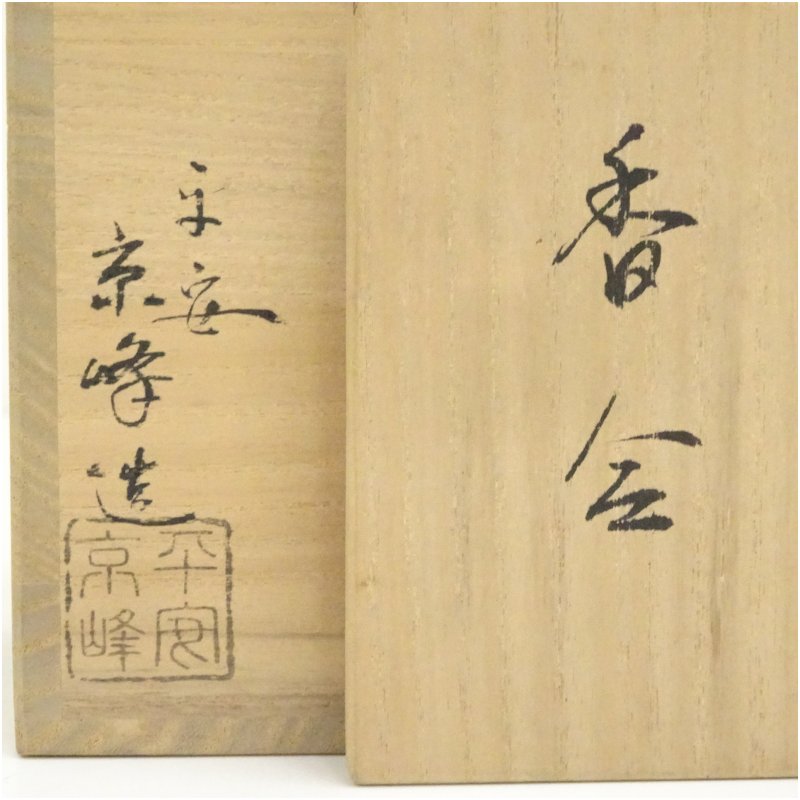 香合
平安
京峰造
平安
京峰